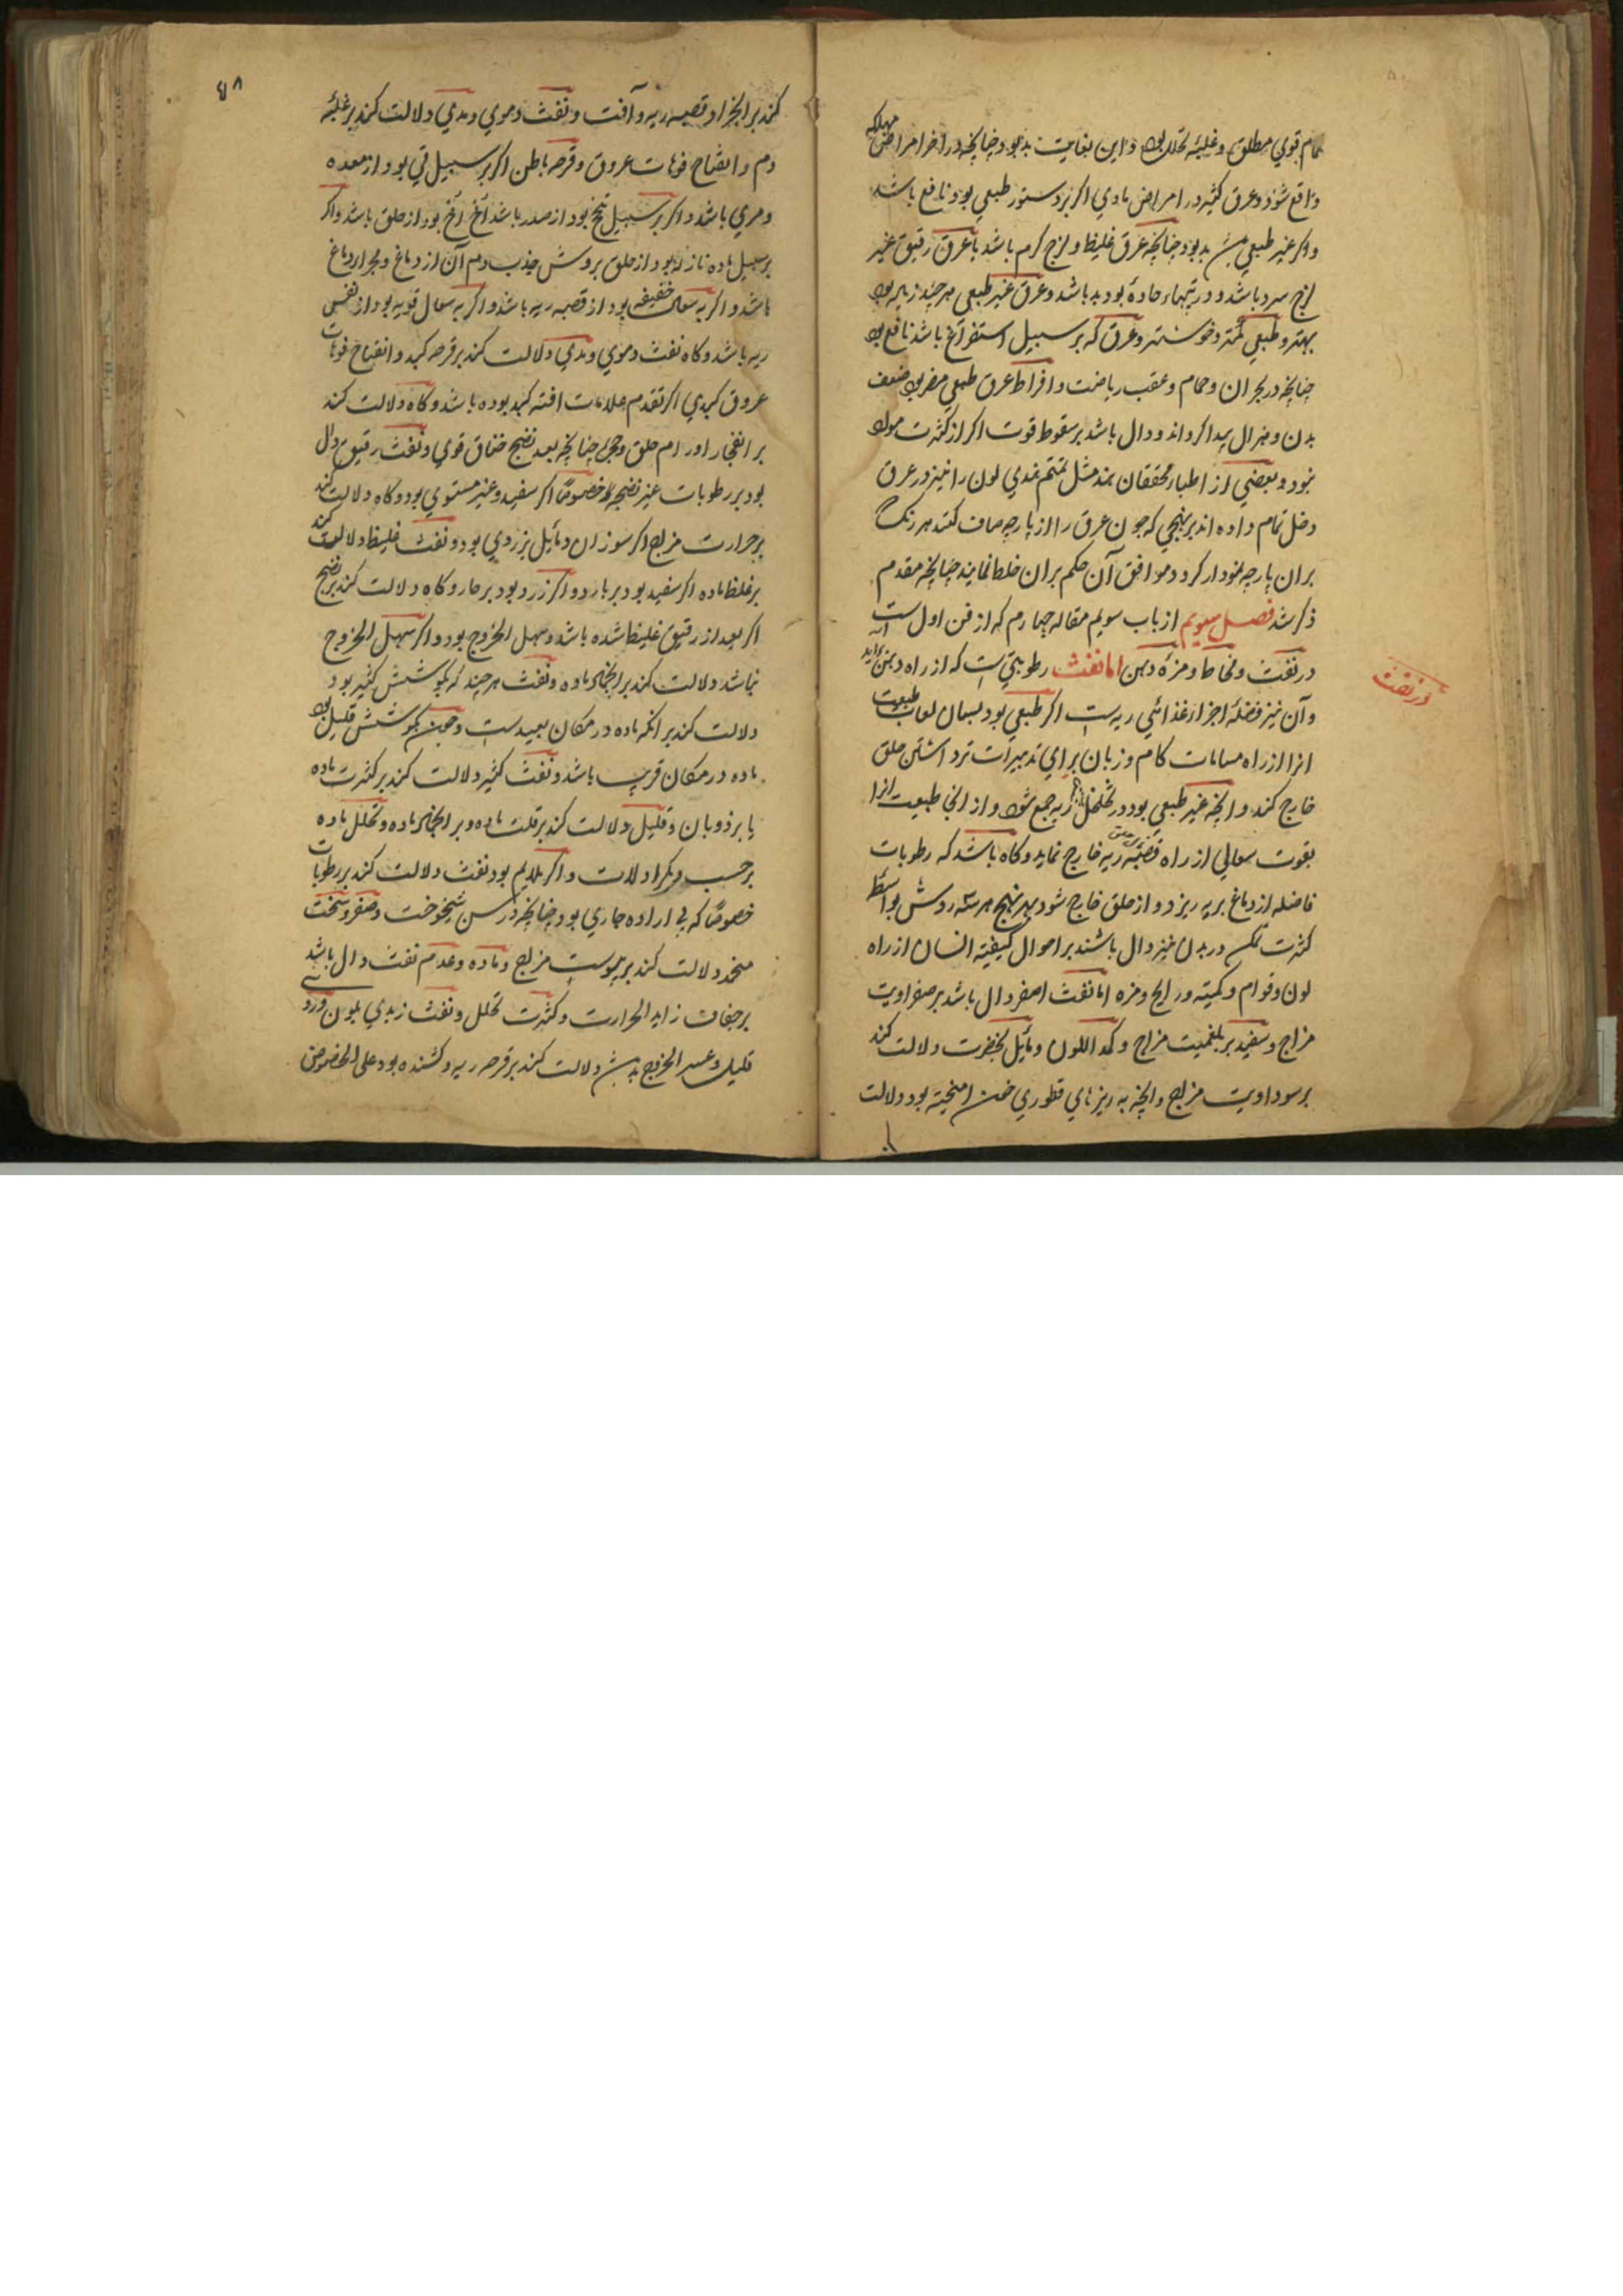 تمام قوي مطلق وغلبهٔ تحلل بود واين بغايت بد بود چنانچه در اخر امراض مهلكه
واقع شود وعرق كثير در امراض مادي اكر بر دستور طبعي بود نافع باشد
واكر غير طبعي بد بود چنانچه عرق غليظ و لزج كرم باشد يا عرق رقيق غير
لزج سرد باشد ودر تبهاء حاده بود بد باشد وعرق غير طبعي هر چند زياده بود
بهتر و طبعي كمتر وخوشتر وعرق كه بر سبيل استفراغ باشد نافع بود
چنانچه در بحران وحمام وعقب رياضت وافراط عرق طبعي مضر بود ضعف
بدن وهزال پيدا كرداند ودال باشد بر سقوط قوت اكر از كثرت مواد
نبود وبعضي از اطباء محققان هند مثل لون را نيز در عرق
دخل تمام داده اند بر نهجي كه چون عرق را از پارچه صاف كنند هر رنك
بران پارچه نمودار كردد موافق آن حكم بران خلط نمايند چنانچه مقدم
ذكر شد فصل سويم از باب سويم مقاله چهارم كه از فن اول است
در نفث ومخاط ومزه دهن اما نفث رطوبتي است كه از راه دهن برآيد
در نفث
وآن نيز فضلهٔ اجزاء غذائي ريه است اكر طبعي بود بسان لعاب طبيعت
انرا از راه مسامات كام وزبان براي تدبيرات تر داشتن حلق
خارج كند وانچه غير طبعي بود در تخلخل ريه جمع شود واز انجا طبيعت انرا
بقوت سعالي از راه قصبهٔ ريه خارج نمايد وكاه باشد كه رطوبات
فاضله از دماغ بريه ريزد و از حلق خارج شود بهر نهج هر سه روش بواسطهٔ
كثرت در بدن نيز دال باشند بر احوال كيفيته انسان از راه
لون وقوام وكميته ورايحه ومزه اما نفث اصفر دال باشد بر صفراويت
مزاج وسفيد بر بلغميت مزاج وكمد اللون ومايل بخضرت دلالت كند
بر سوداويت مزاج وانچه به ريزهاي قطوري خون اميخته بود دلالت
٤٨
كند بر انجراد قصبه ريه وآفت ونفث دموي ومدي دلالت كند بر غلبهٔ
دم وانفتاح فوهات عروق وقرحه باطن اكر بر سبيل قي بود از معده
ومري باشد واكر بر سبيل تنخع بود از صدر باشد اخ اخ بود از حلق باشد واكر
بر سبيل ماده نازله بود از حلق بروش جذب دم آن از دماغ ومجراء دماغ
باشد واكر به سعال خفيفه بود از قصبه ريه باشد واكر به سعال قويه بود از نفس
ريه باشد وكاه نفث دموي ومدي دلالت كند بر قرحه كبد وانفتاح فوهات
عروق كبدي اكر تقدم علامات افته كبد بوده باشد وكاه دلالت كند
بر انفجار اورام حلق وحجره چنانچه بعد نضج خناق قوي ونفث رقيق دال
بود بر رطوبات غير نضجه خصوصًا اكر سفيد وغير مستوي بود وكاه دلالت كند
بر حرارت مزاج اكر سوزان ومايل بزردي بود ونفث غليظ دلالت كند
بر غلظ ماده اكر سفيد بود بر بارد واكر زرد بود بر حار وكاه دلالت كند بر نضج
اكر بعد از رقيق غليظ شده باشد وسهل الخروج بود واكر سهل الخروج
نباشد دلالت كند بر انجماد ماده ونفث هر چند كه بكوشش كثير بود
دلالت كند بر انكه ماده در مكان بعيد است وچون بكوشش قليل بود
ماده در مكان قريب باشد ونفث كثير دلالت كند بر كثرت ماده
يا بر ذوبان وقليل دلالت كند بر قلت ماده وبر انجماد ماده وتحلل ماده
بر حسب ديكر ادلات واكر ملايم بود نفث دلالت كند بر رطوبات
خصوصًا كه بي اراده جاري بود چنانچه در سن شيخوخت وصغر وسخت
منجمد دلالت كند بر يبوست مزاج وماده وعدم نفث دال باشد
بر جفاف زايد الحرارت وكثرت تحلل ونفث زبدي بلون ورد
قليل وعسر الخروج دلالت كند بر قرحه ريه وكشنده بود على الخصوص